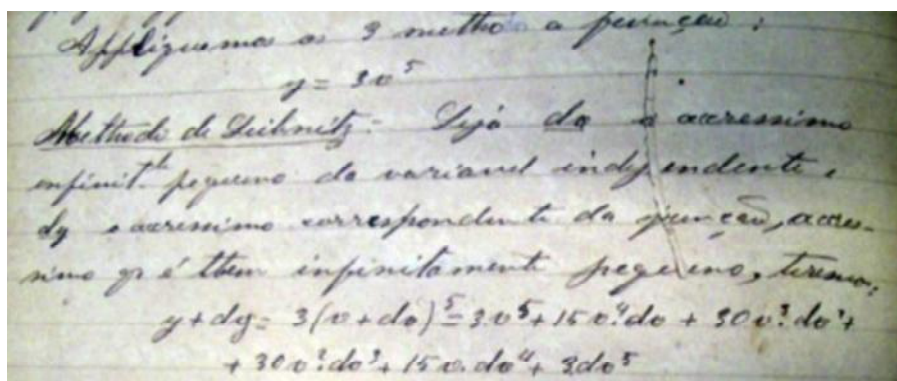 Appliquemos os 3 metho a funcção:
y = 3v⁵
Methodo de Leibnitz - Seja dv o accressimo
infinit.te pequeno da variavel independente e
dy o accressimo correspondente da funcção, accres-
simo q̃ é tbem infinitamente pequeno, teremos:
y+dy = 3(v+dv)⁵ = 3v⁵ + 15v⁴.dv + 30v³.dv² +
+ 30v².dv³ + 15v.dv⁴ + 3dv⁵